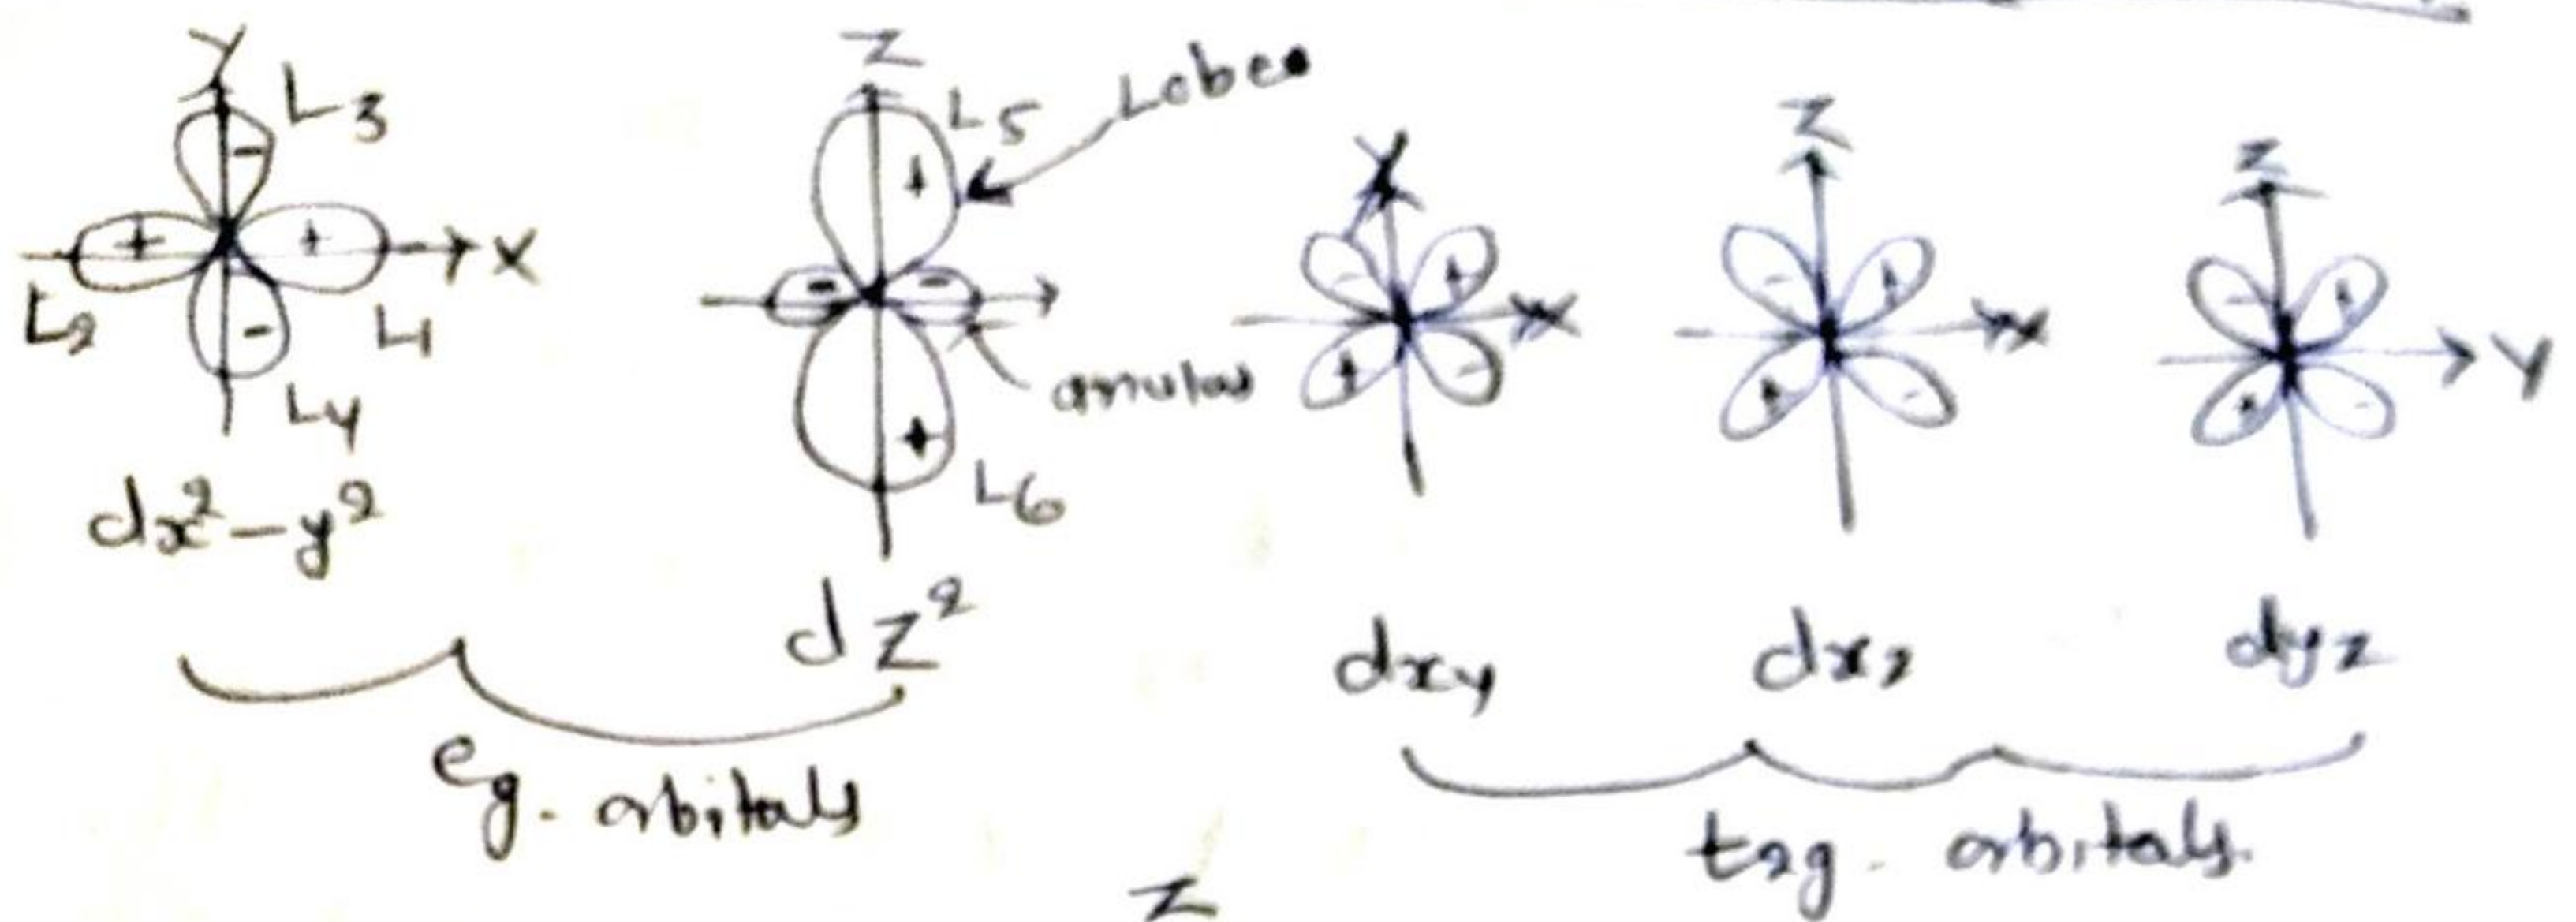 Y
L3
+ - + -
X
L2
L1
L4
dx²-y²
Z
L5
Lobes
+
- -
anulas
+
L6
dz²
eg. orbitals
Y
- +
X
+ -
dxy
Z
- +
X
+ -
dxz
Z
- +
Y
+ -
dyz
t2g. orbitals.
Z